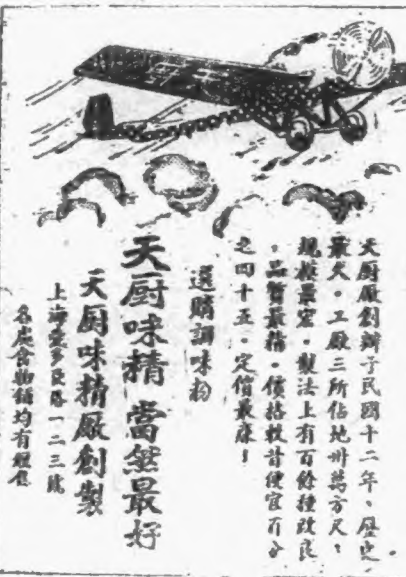 天廚廠創辦于民國十二年，歷史
最久。工廠三所佔地卅萬方尺，
規模最宏。製法上有百餘種改良
，品質最精。價格較計便宜百分
之四十五。定價最廉！
選購調味粉
天廚味精 當然最好
天廚味精廠創製
上海愛多亞路一二三號
各處食物舖均有經售